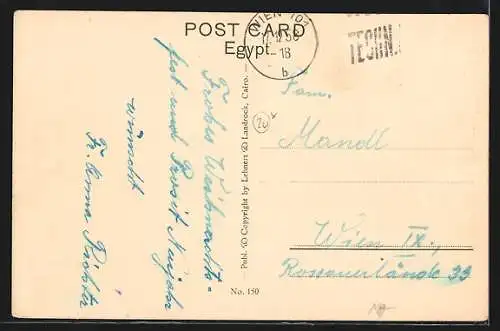 POST CARD
Egypt.
WIEN 101
-18
b
TECHN
Frohes Weihnachts-
fest und Prosit Neujahr
wünscht
Fr. Anna Richter
Publ. & Copyright by Lehnert & Landrock, Cairo.
No. 150
Fam.
Mandl
Wien IX.,
Rossauerlände 33